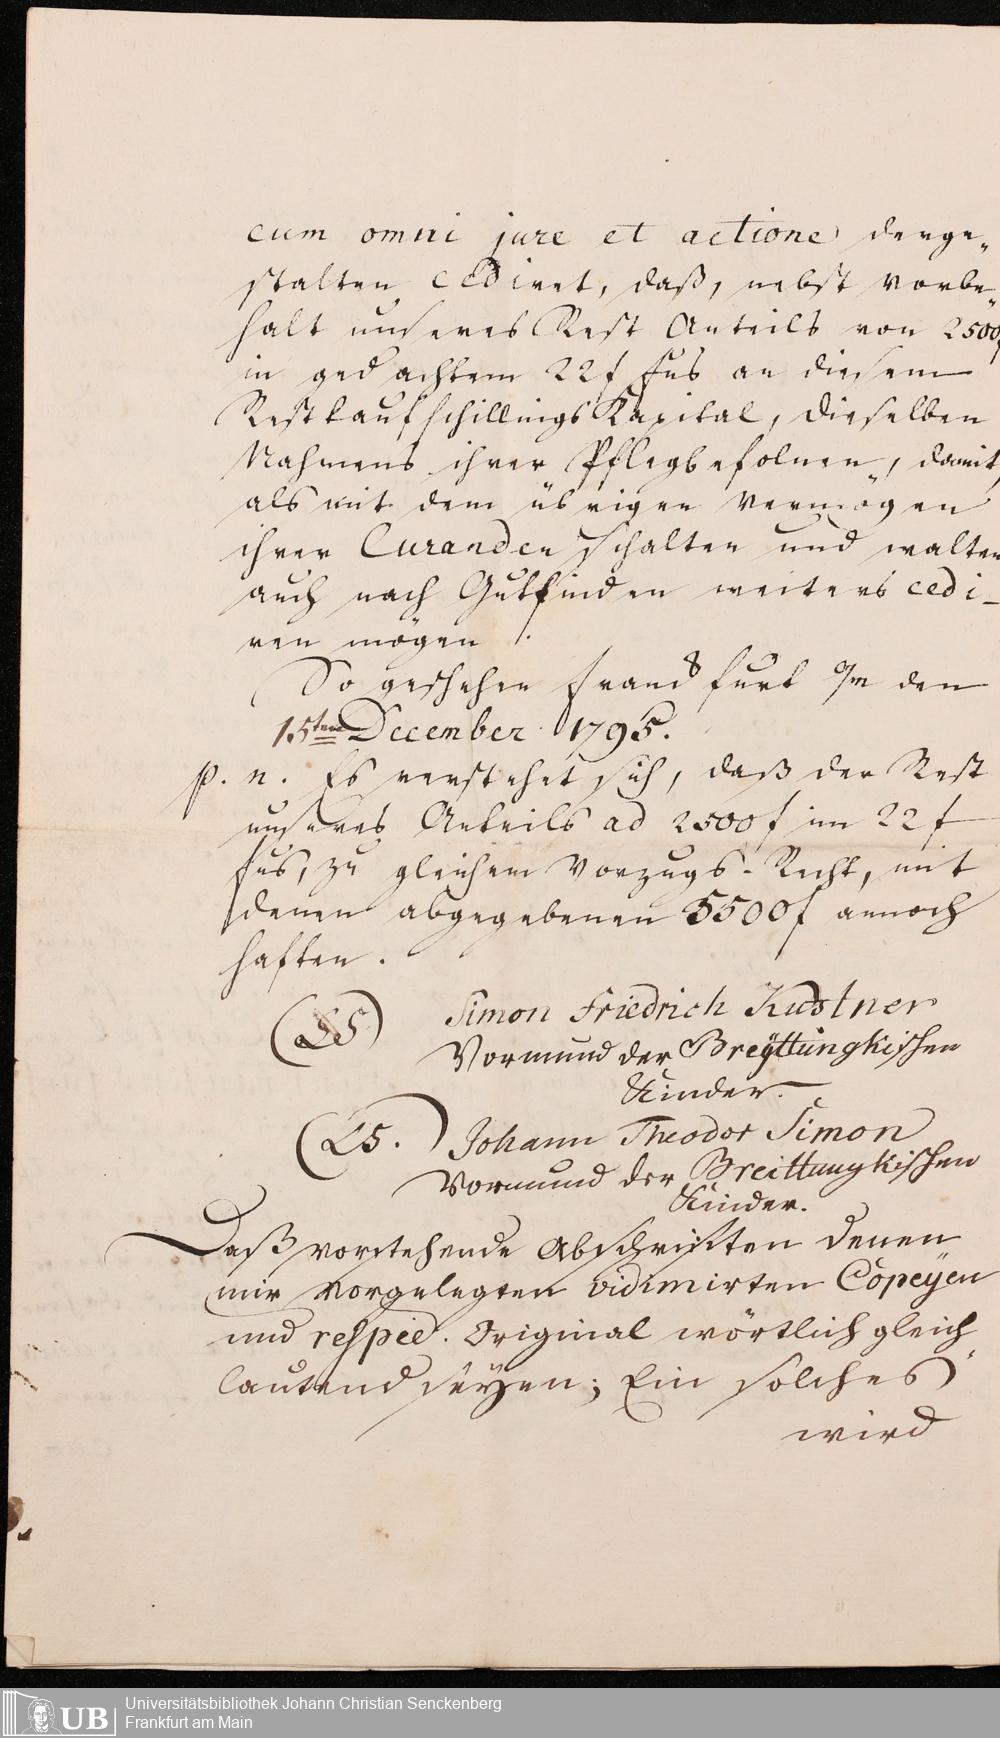 cum omni jure et actione derge„
stalten cediret, daß, nebst Vorbe„
halt unseres Rest Anteils von 2500f
in gedachtem 22f Fus an diesem
Restkaufschillings Kapital, dieselben
Nahmens ihrer Pflegbefolnen, damit,
als mit dem übrigen Vermögen
ihrer Curanden schalten und walten
auch nach Gutfinden weiters cedi-
ren mögen.
So geschehen Francfurt a/m den
15ten December 1795.
p. n. Es verstehet sich, daß der Rest
unseres Anteils ad 2500f im 22f
Fus, zu gleichem Vorzugs-Recht, mit
denen abgegebenen 5500f annoch
haften.
(LS) Simon Friedrich Küstner
Vormund der Breÿttungkischen
Kinder.
(LS.) Johann Theodor Simon
Vormund der Breittungkischen
Kinder.
Daß vorstehende Abschriften denen
mir vorgelegten vidimirten Copeÿen
und respec. Original wörtlich gleich
lautend seÿen; Ein solches
wird
UB
Universitätsbibliothek Johann Christian Senckenberg
Frankfurt am Main